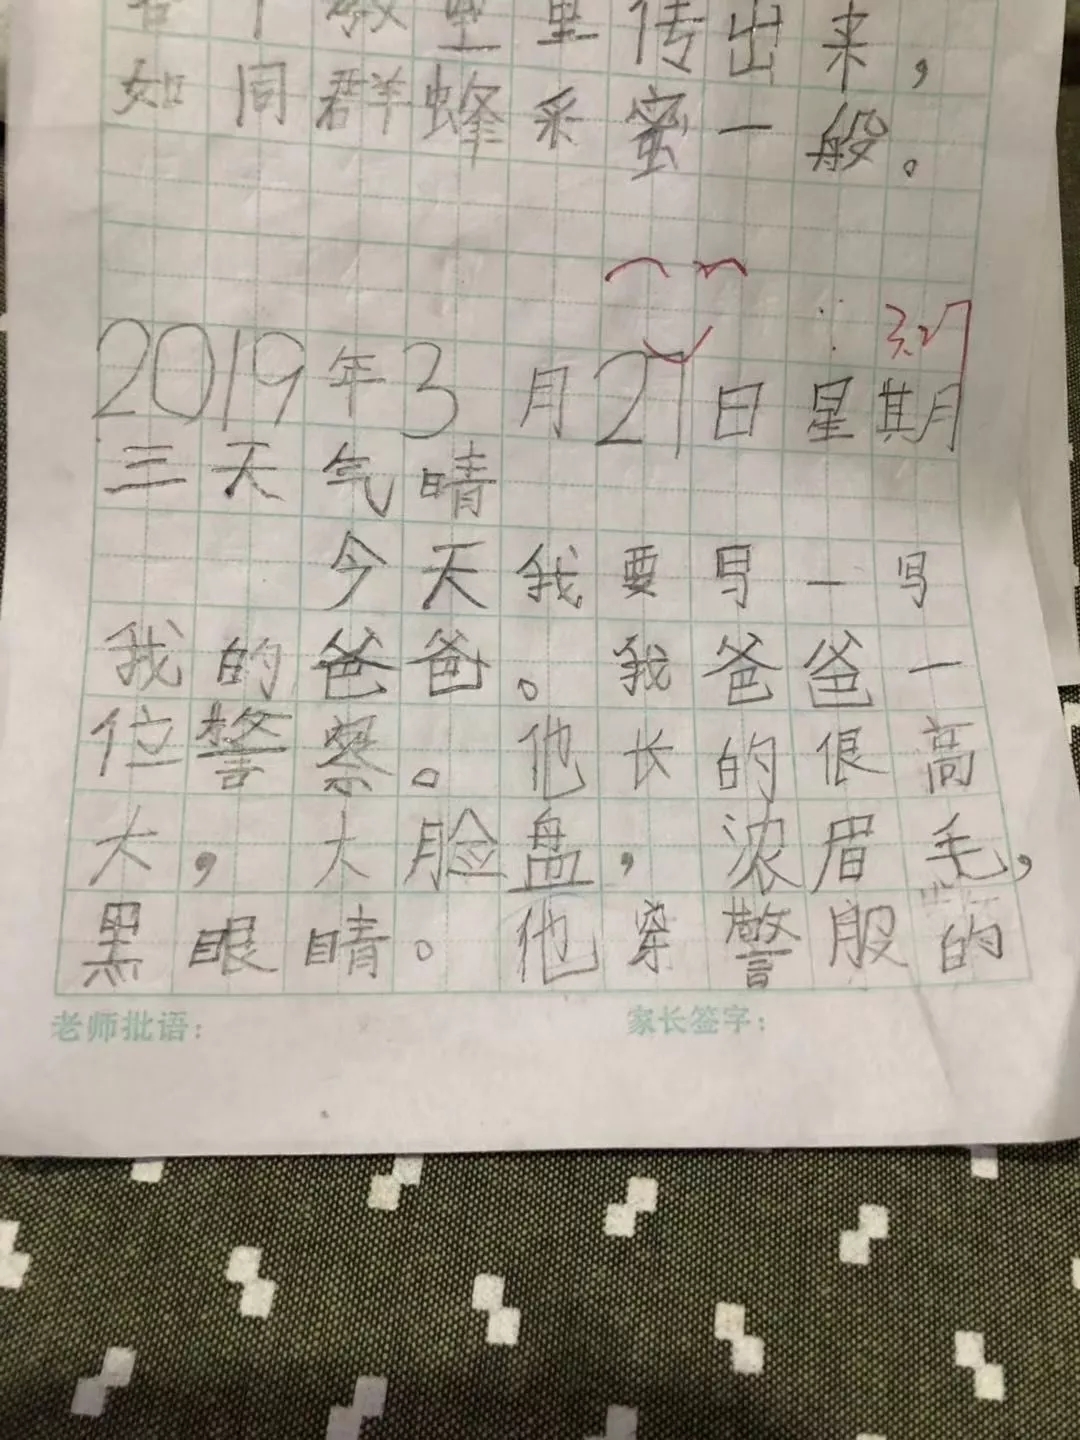 各个教室里传出来，
如同群蜂采蜜一般。
3.27
2019年3月27日星期
三天气晴
今天我要写一写
我的爸爸。我爸爸一
位警察。他长的很高
大，大脸盘，浓眉毛，
黑眼睛。他穿警服的
老师批语：
家长签字：